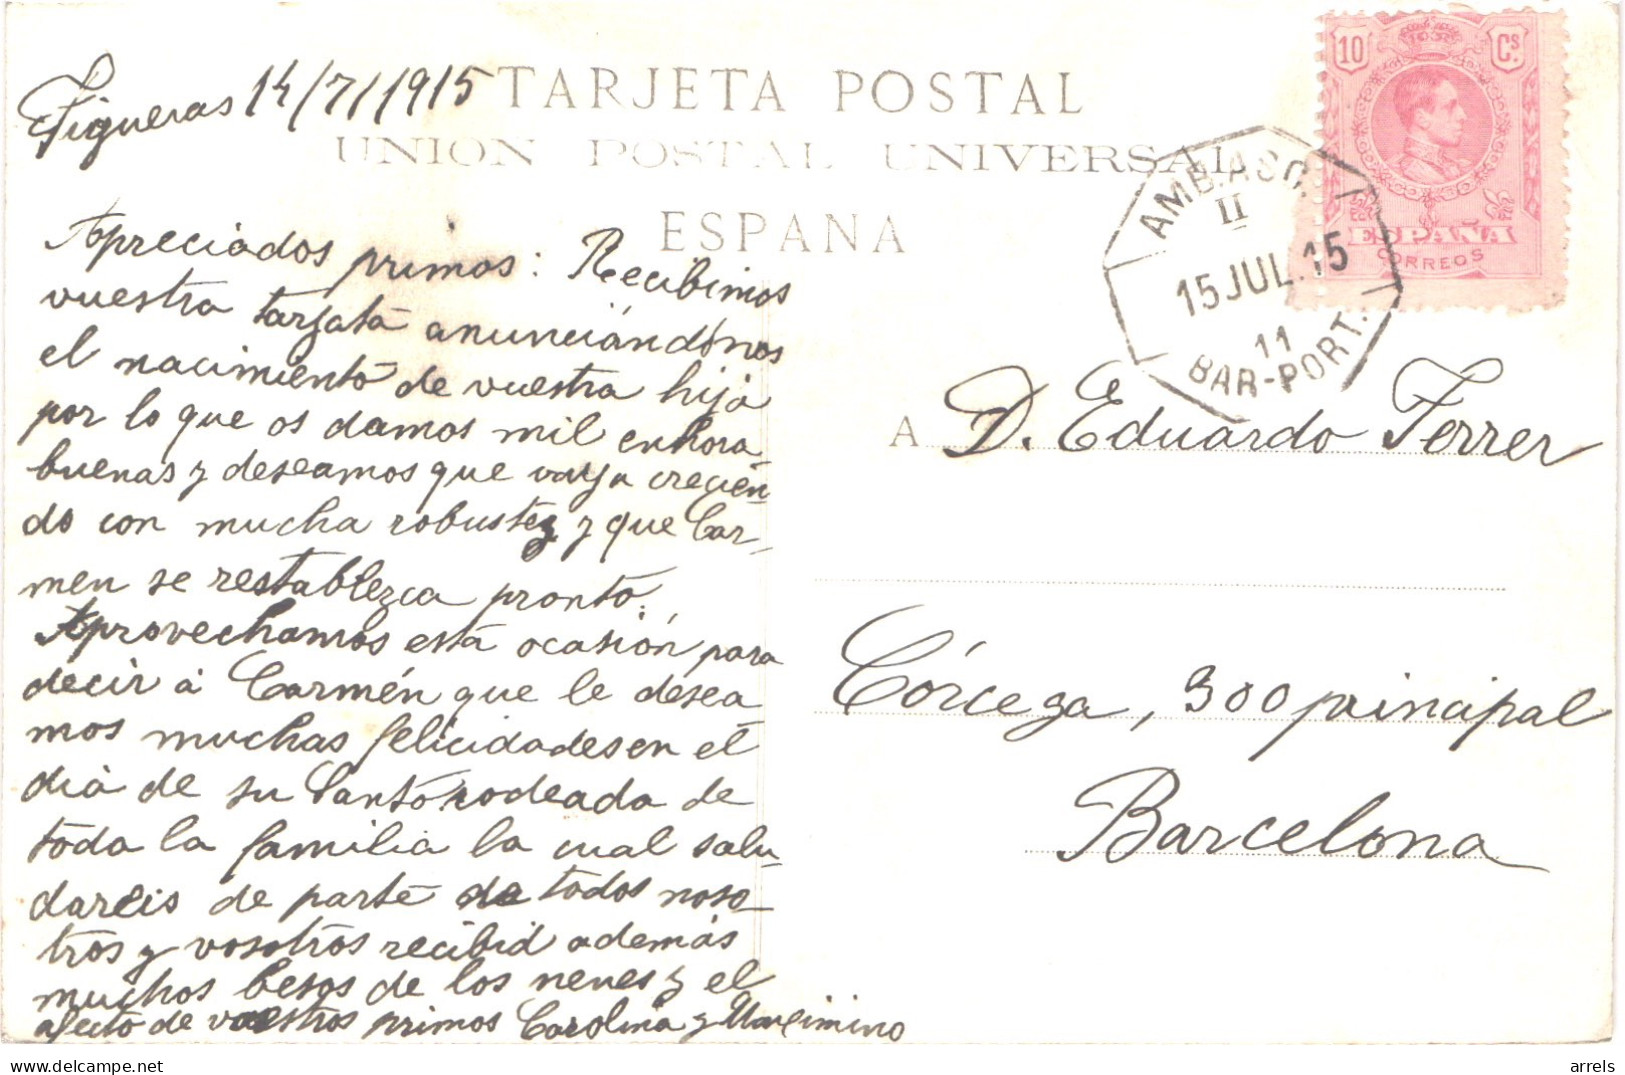 Figueras 14/7/1915
TARJETA POSTAL
UNION POSTAL UNIVERSAL
ESPAÑA
10 Cs.
ESPAÑA
CORREOS
AMB. ASC.
II
15 JUL. 15
11
BAR-PORT.
Apreciados primos: Recibimos
vuestra tarjata anunciándonos
el nacimiento de vuestra hija
por lo que os damos mil enhora
buenas y deseamos que vaya crecien-
do con mucha robustez y que Car-
men se restablezca pronto.
Aprovechamos esta ocasión para
decir á Carmén que le desea
mos muchas felicidades en el
dia de su Santo rodeada de
toda la familia la cual salu-
dareis de parte de todos noso-
tros y vosotros recibid además
muchos besos de los nenes y el
afecto de vuestros primos Carolina y Maximino
A D. Eduardo Ferrer
Córcega, 300 principal
Barcelona
arrels